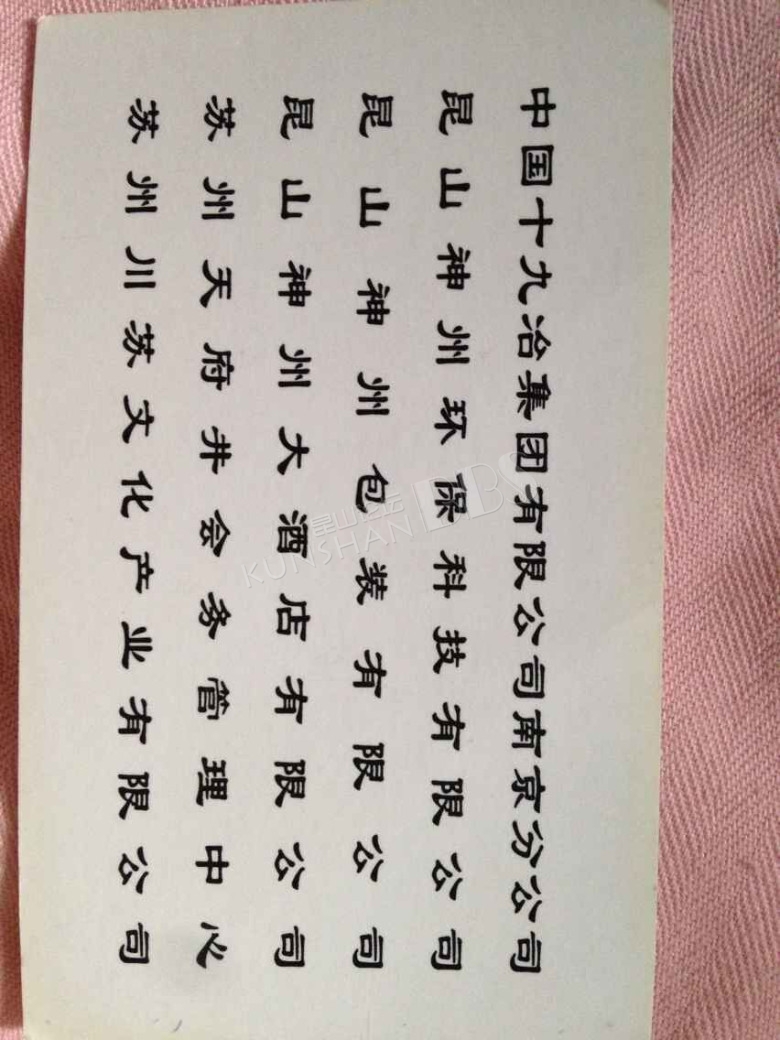 中国十九冶集团有限公司南京分公司
昆山神州环保科技有限公司
昆山神州包装有限公司
昆山神州大酒店有限公司
苏州天府井会务管理中心
苏州川苏文化产业有限公司
KUNSHAN BBS